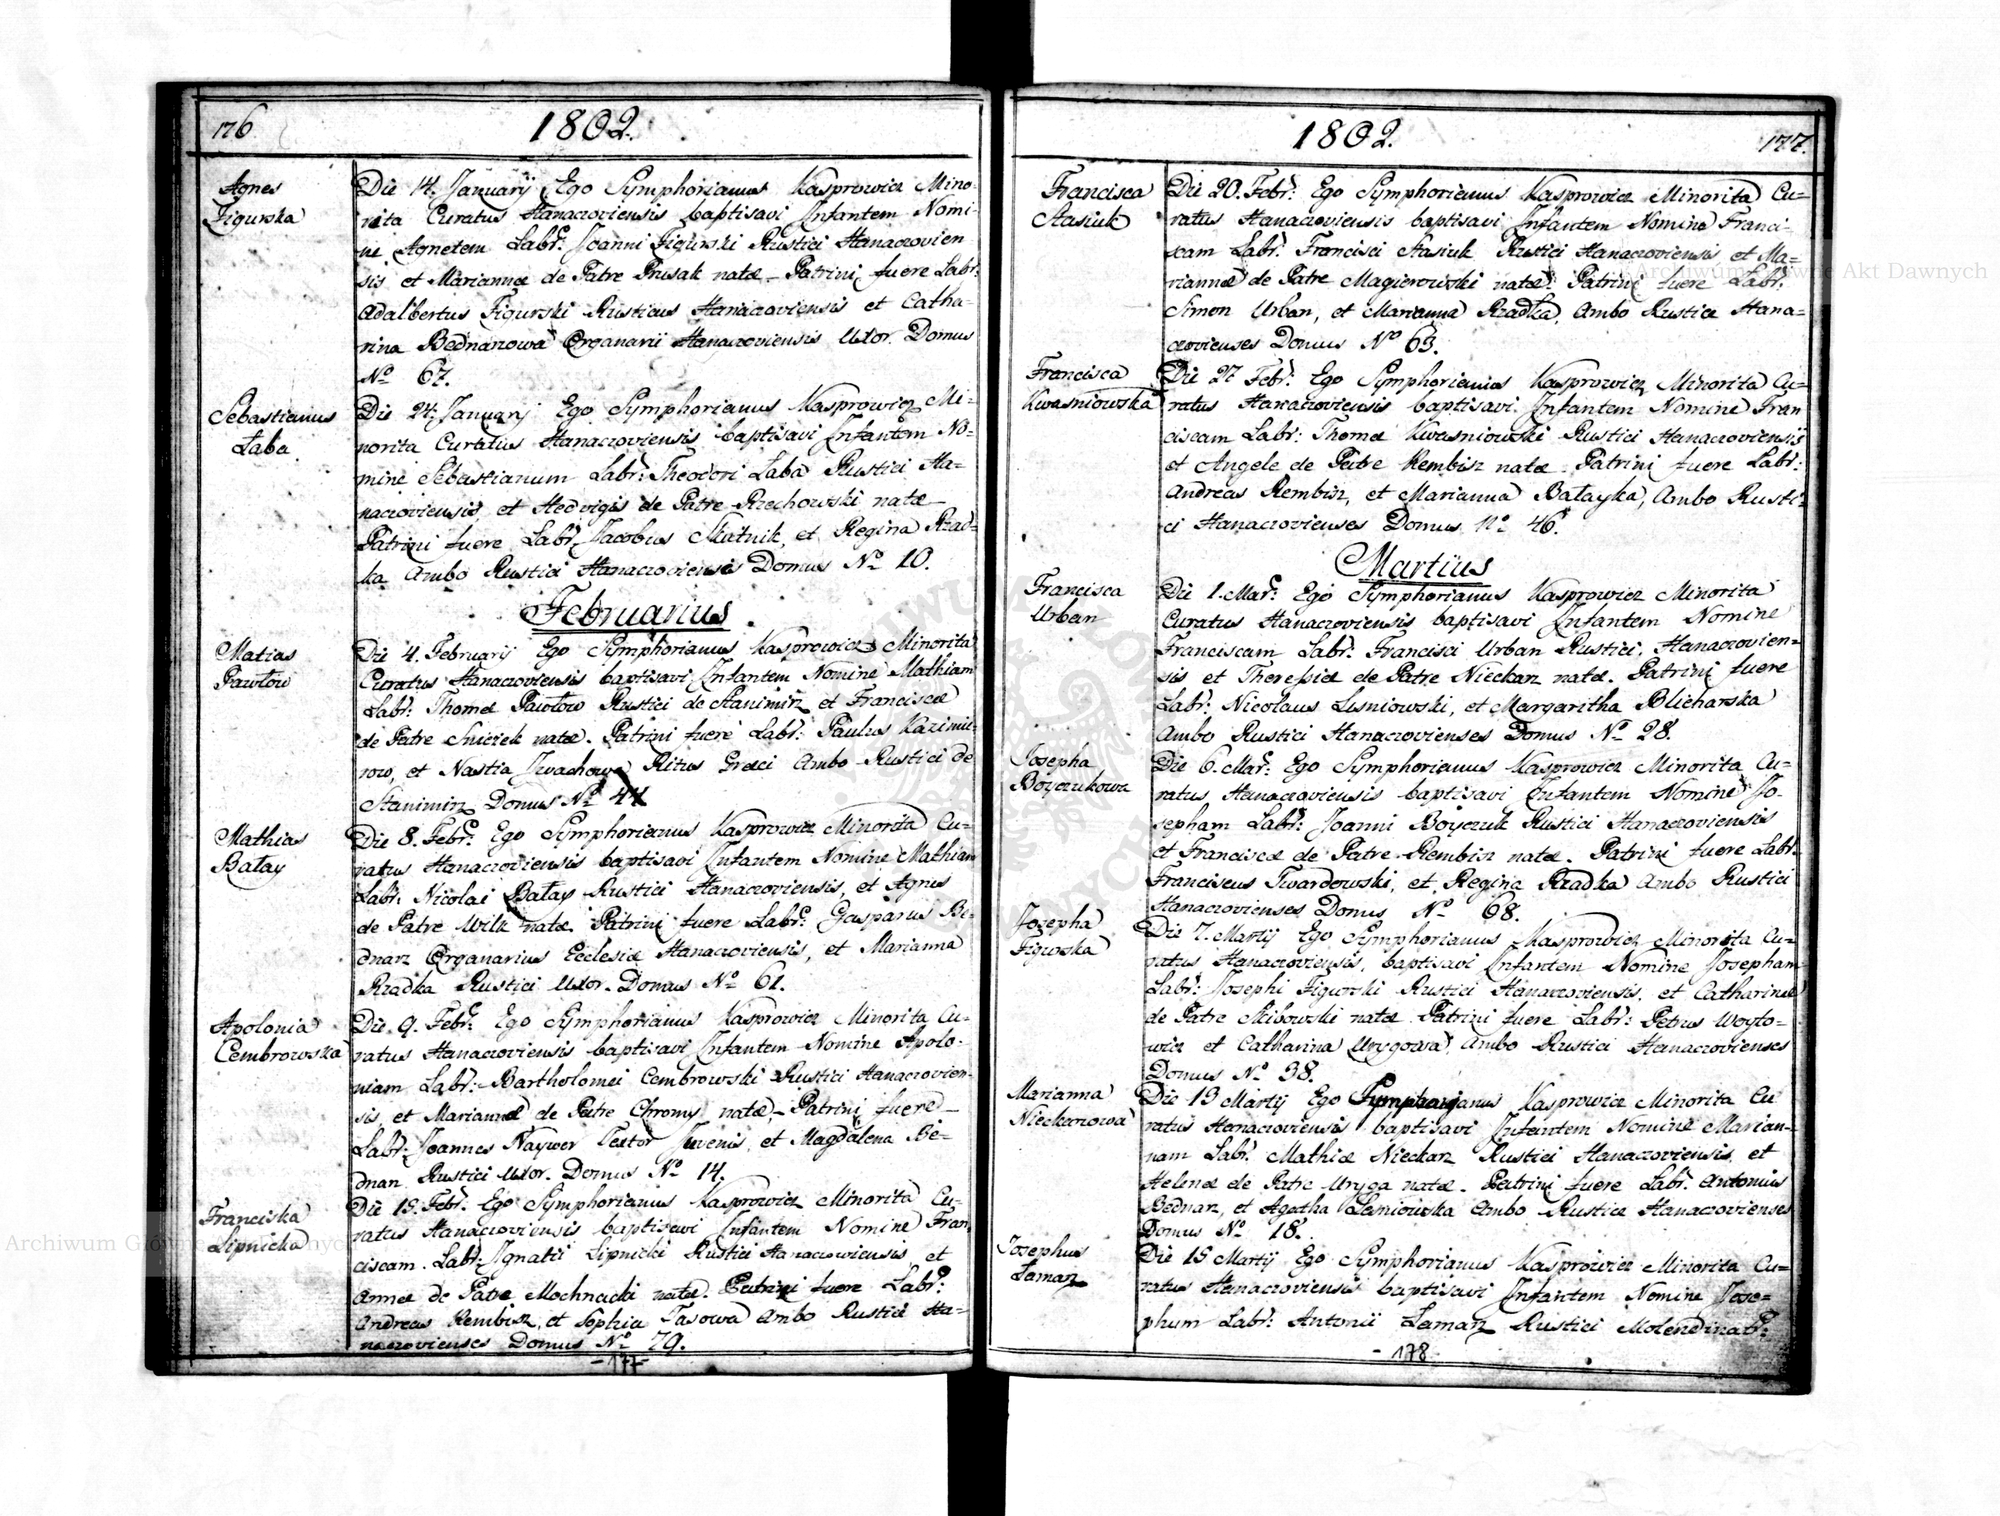 176
1802.
Agnes
Figurska
Die 14. Januarij Ego Symphorianus Kasprowicz Mino-
rita Curatus Hanaczoviensis baptisavi Infantem Nomi-
ne Agnetem Labr: Joanni Figurski Rustici Hanaczovien-
sis et Mariannæ de Patre Prusak natæ - Patrini fuere Labr:
Adalbertus Figurski Rusticus Hanaczoviensis et Catha-
rina Bednarzowa Organarii Hanaczoviensis Uxor. Domus
No 67.
Sebastianus
Laba
Die 24. Januarij Ego Symphorianus Kasprowicz Mi-
norita Curatus Hanaczoviensis baptisavi Infantem No-
mine Sebastianum Labr: Theodori Laba Rustici Ha-
naczoviensis, et Hedvigis de Patre Rzechowski natæ -
Patrini fuere Labr: Jacobus Skatnik, et Regina Rząd-
ka Ambo Rustici Hanaczoviensis Domus No 10.
Februarius
Matias
Pawłow
Die 4. Februarij Ego Symphorianus Kasprowicz Minorita
Curatus Hanaczoviensis baptisavi Infantem Nomine Mathiam
Labr: Thomæ Pawłow Rustici de Stanimirz et Franciscæ
de Patre Snieżek natæ. Patrini fuere Labr: Paulus Kazimi-
row, et Nastia Iwachowa Ritus Græci Ambo Rustici de
Stanimirz Domus No 44
Mathias
Bałay
Die 8. Febr: Ego Symphorianus Kasprowicz Minorita Cu-
ratus Hanaczoviensis baptisavi Infantem Nomine Mathiam
Labr: Nicolai Bałay Rustici Hanaczoviensis, et Agnes
de Patre Wilk natæ. Patrini fuere Labr: Gasparus Be-
dnarz Organarius Ecclesiæ Hanaczoviensis, et Marianna
Rządka Rustici Uxor. Domus No 61.
Apolonia
Cembrowska
Die 9. Febr: Ego Symphorianus Kasprowicz Minorita Cu-
ratus Hanaczoviensis baptisavi Infantem Nomine Apolo-
niam Labr: Bartholomei Cembrowski Rustici Hanaczovien-
sis, et Mariannæ de Patre Chromy natæ - Patrini fuere -
Labr: Joannes Naywer Textor Juvenis, et Magdalena Be-
dnarz Rustici Uxor. Domus No 14.
Franciska
Lipnicka
Die 15. Febr: Ego Symphorianus Kasprowicz Minorita Cu-
ratus Hanaczoviensis baptisavi Infantem Nomine Fran-
ciscam Labr: Ignatii Lipnicki Rustici Hanaczoviensis, et
Annæ de Patre Mochnacki natæ. Patrini fuere Labr:
Andreas Rembisz, et Sophia Tasowa Ambo Rustici Ha-
naczovienses Domus No 79.
-177-
1802.
177.
Francisca
Stasiuk
Die 20. Febr: Ego Symphorianus Kasprowicz Minorita Cu-
ratus Hanaczoviensis baptisavi Infantem Nomine Franci-
scam Labr: Francisci Stasiuk Rustici Hanaczoviensis et Ma-
riannæ de Patre Magierowski natæ. Patrini fuere Labr:
Simon Urban, et Marianna Rządka, Ambo Rustici Hana-
czovienses Domus No 63.
Francisca
Kwasniowska
Die 27 Febr: Ego Symphorianus Kasprowicz Minorita Cu-
ratus Hanaczoviensis baptisavi Infantem Nomine Fran
ciscam Labr: Thomæ Kwasniowski Rustici Hanaczoviensis
et Angele de Patre Rembisz natæ. Patrini fuere Labr:
Andreas Rembisz, et Marianna Bałayka, Ambo Rusti-
ci Hanaczovienses Domus No 46.
Martius
Francisca
Urban
Die 1. Mar: Ego Symphorianus Kasprowicz Minorita
Curatus Hanaczoviensis baptisavi Infantem Nomine
Franciscam Labr: Francisci Urban Rustici Hanaczovien-
sis et Theressiæ de Patre Nieckarz natæ. Patrini fuere
Labr: Nicolaus Lisniowski, et Margaritha Blicharska
Ambo Rustici Hanaczovienses Domus No 28.
Josepha
Boyczukowa
Die 6. Mar: Ego Symphorianus Kasprowicz Minorita Cu-
ratus Hanaczoviensis baptisavi Infantem Nomine Jo-
sepham Labr: Joanni Boyczuk Rustici Hanaczoviensis
et Franciscæ de Patre Rembisz natæ. Patrini fuere Labr:
Franciscus Twardowski, et Regina Rządka Ambo Rustici
Hanaczovienses Domus No 68.
Jozepha
Figurska
Die 7. Martij Ego Symphorianus Kasprowicz Minorita Cu-
ratus Hanaczoviensis, baptisavi Infantem Nomine Josepham
Labr: Josephi Figurski Rustici Hanaczoviensis, et Catharinæ
de Patre Skibowski natæ. Patrini fuere Labr: Petrus Woyto-
wicz et Catharina Urygowa, Ambo Rustici Hanaczovienses
Domus No 38.
Marianna
Nieckarzowa
Die 13 Martij Ego Symphorianus Kasprowicz Minorita Cu
ratus Hanaczoviensis baptisavi Infantem Nomine Marian-
nam Labr: Mathiæ Nieckarz Rustici Hanaczoviensis et
Helenæ de Patre Uryga natæ. Patrini fuere Labr: Antonius
Bednarz, et Agatha Lesniowska Ambo Rustici Hanaczovienses
Domus No 18.
Josephus
Lamarz
Die 15 Martij Ego Symphorianus Kasprowicz Minorita Cu-
ratus Hanaczoviensis baptisavi Infantem Nomine Jose-
phum Labr: Antonii Lamarz Rustici Molendinatr:
-178
Archiwum Główne Akt Dawnych
Archiwum Główne Akt Dawnych